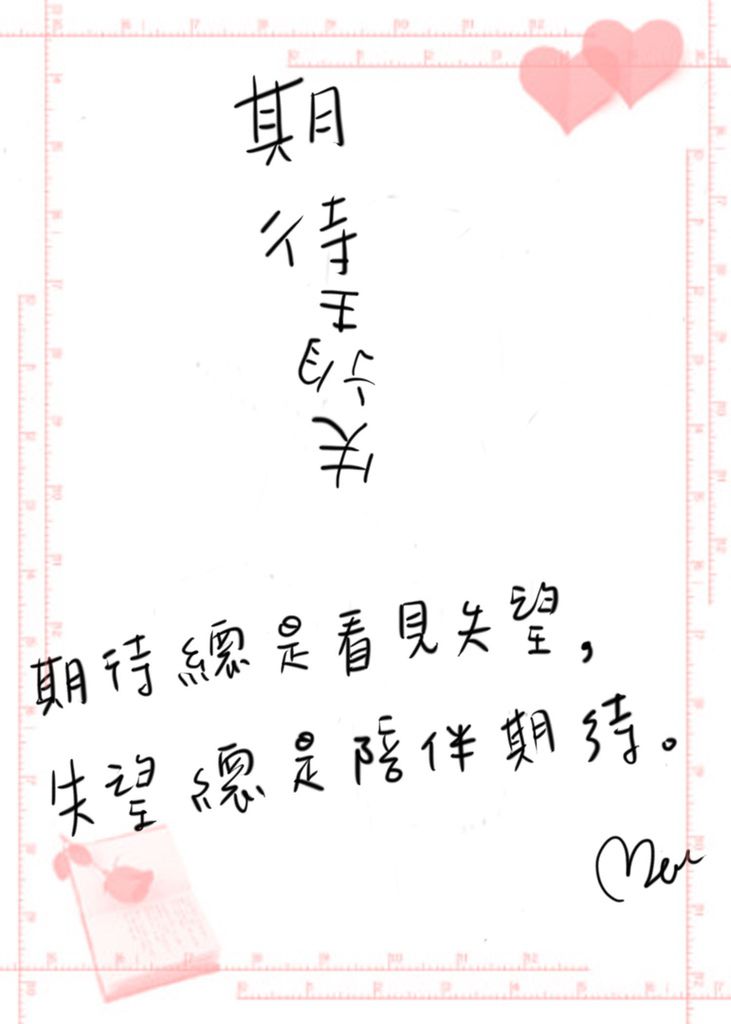 期
待
望
失
期待總是看見失望，
失望總是陪伴期待。